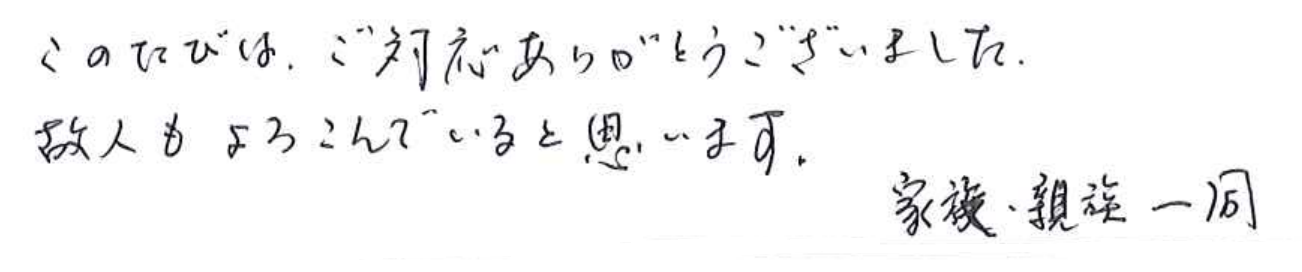 このたびは、ご対応ありがとうございました.
故人もよろこんでいると思います.
家族・親族一同